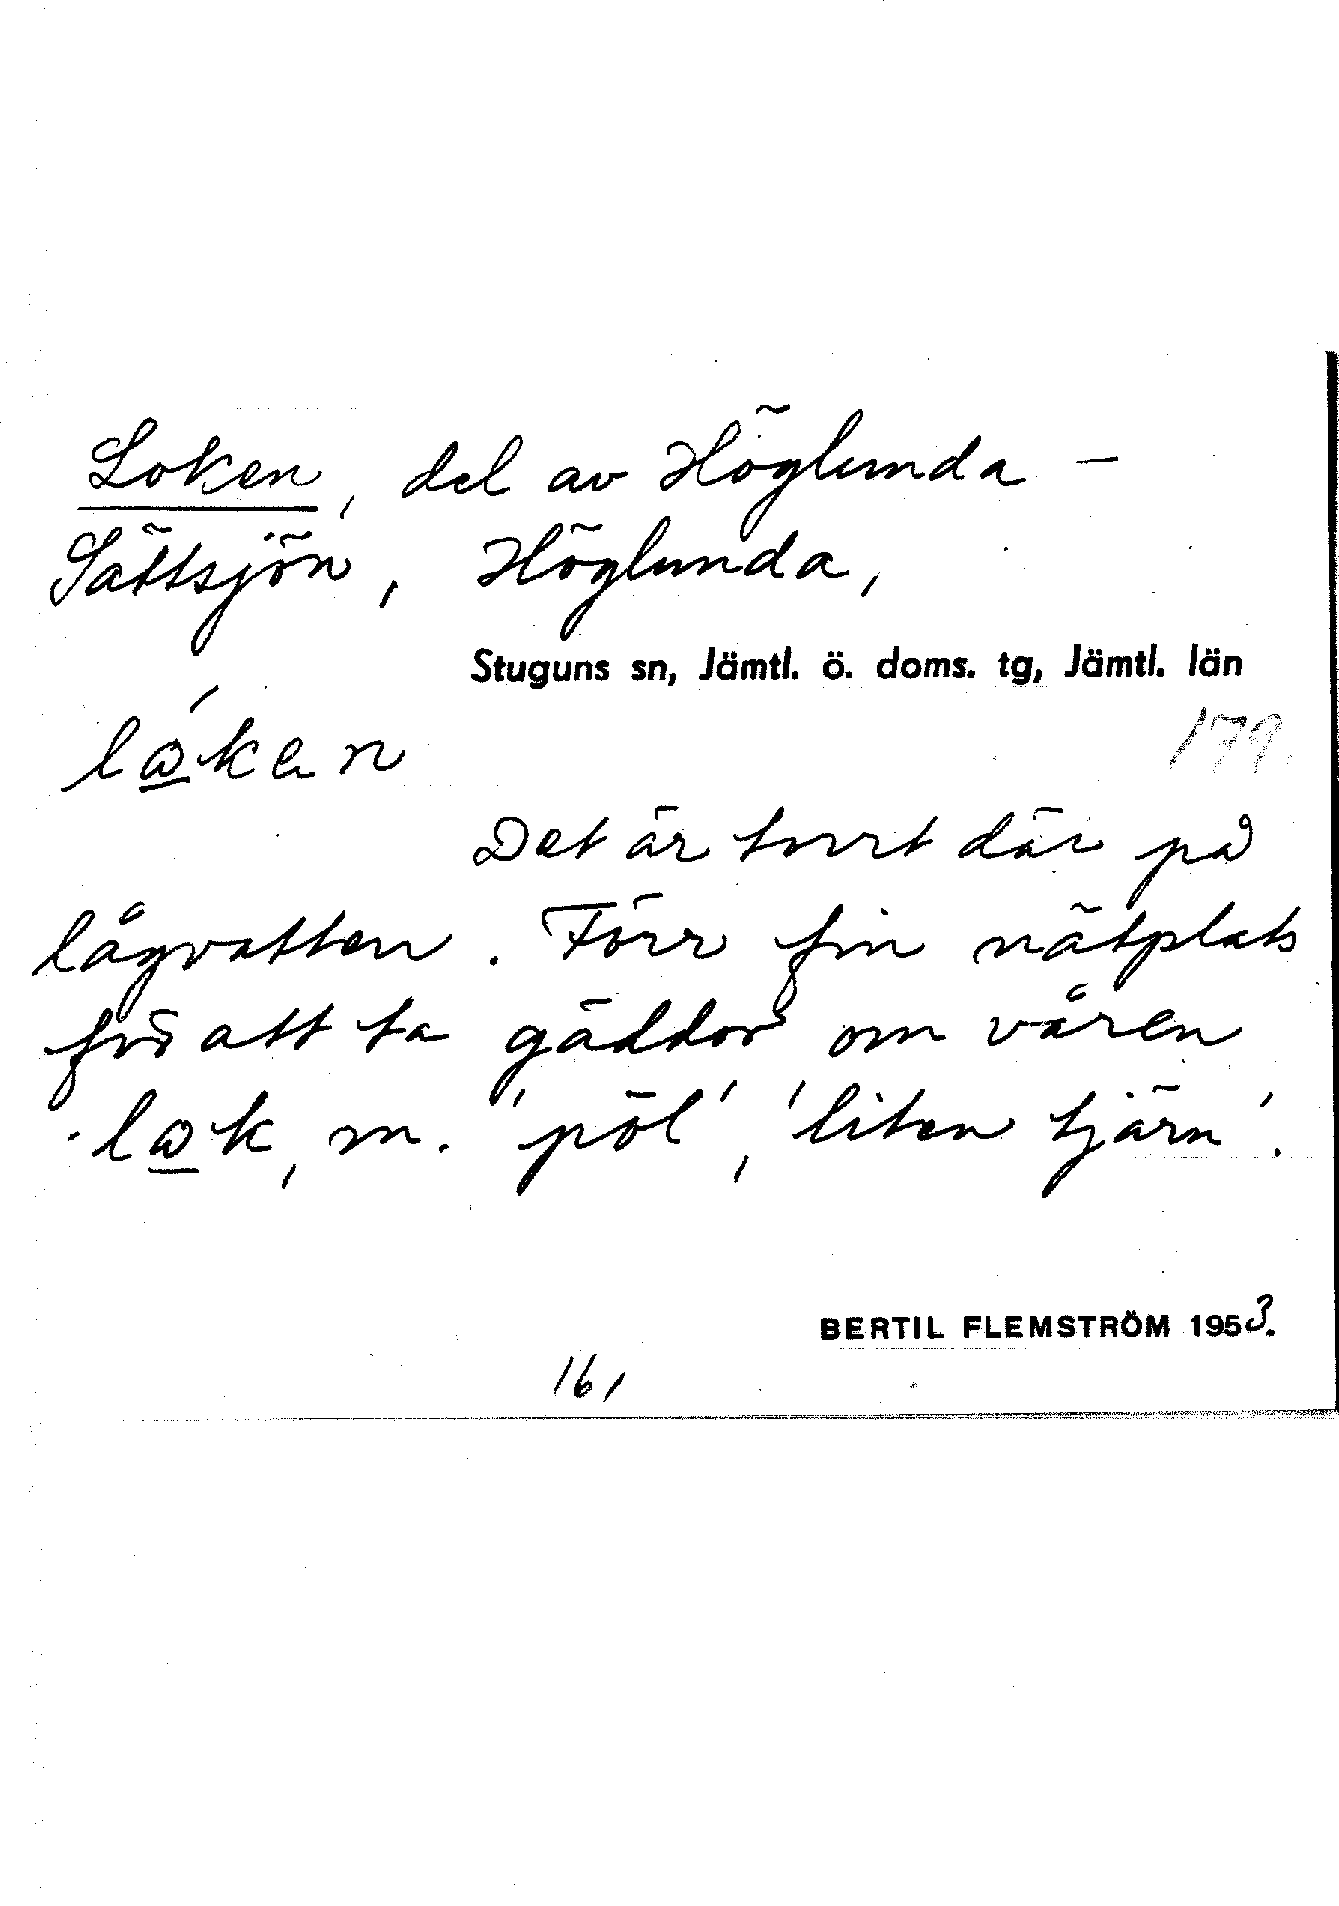 Loken, del av Höglunda-
Sättsjön, Höglunda,
Stuguns sn, Jämtl. ö. doms. tg, Jämtl. län
179
Det är torrt där på
lågvatten. Förr fin nätplats
för att ta gäddor om våren
m. 'pöl', 'liten tjärn'.
BERTIL FLEMSTRÖM 1953.
161